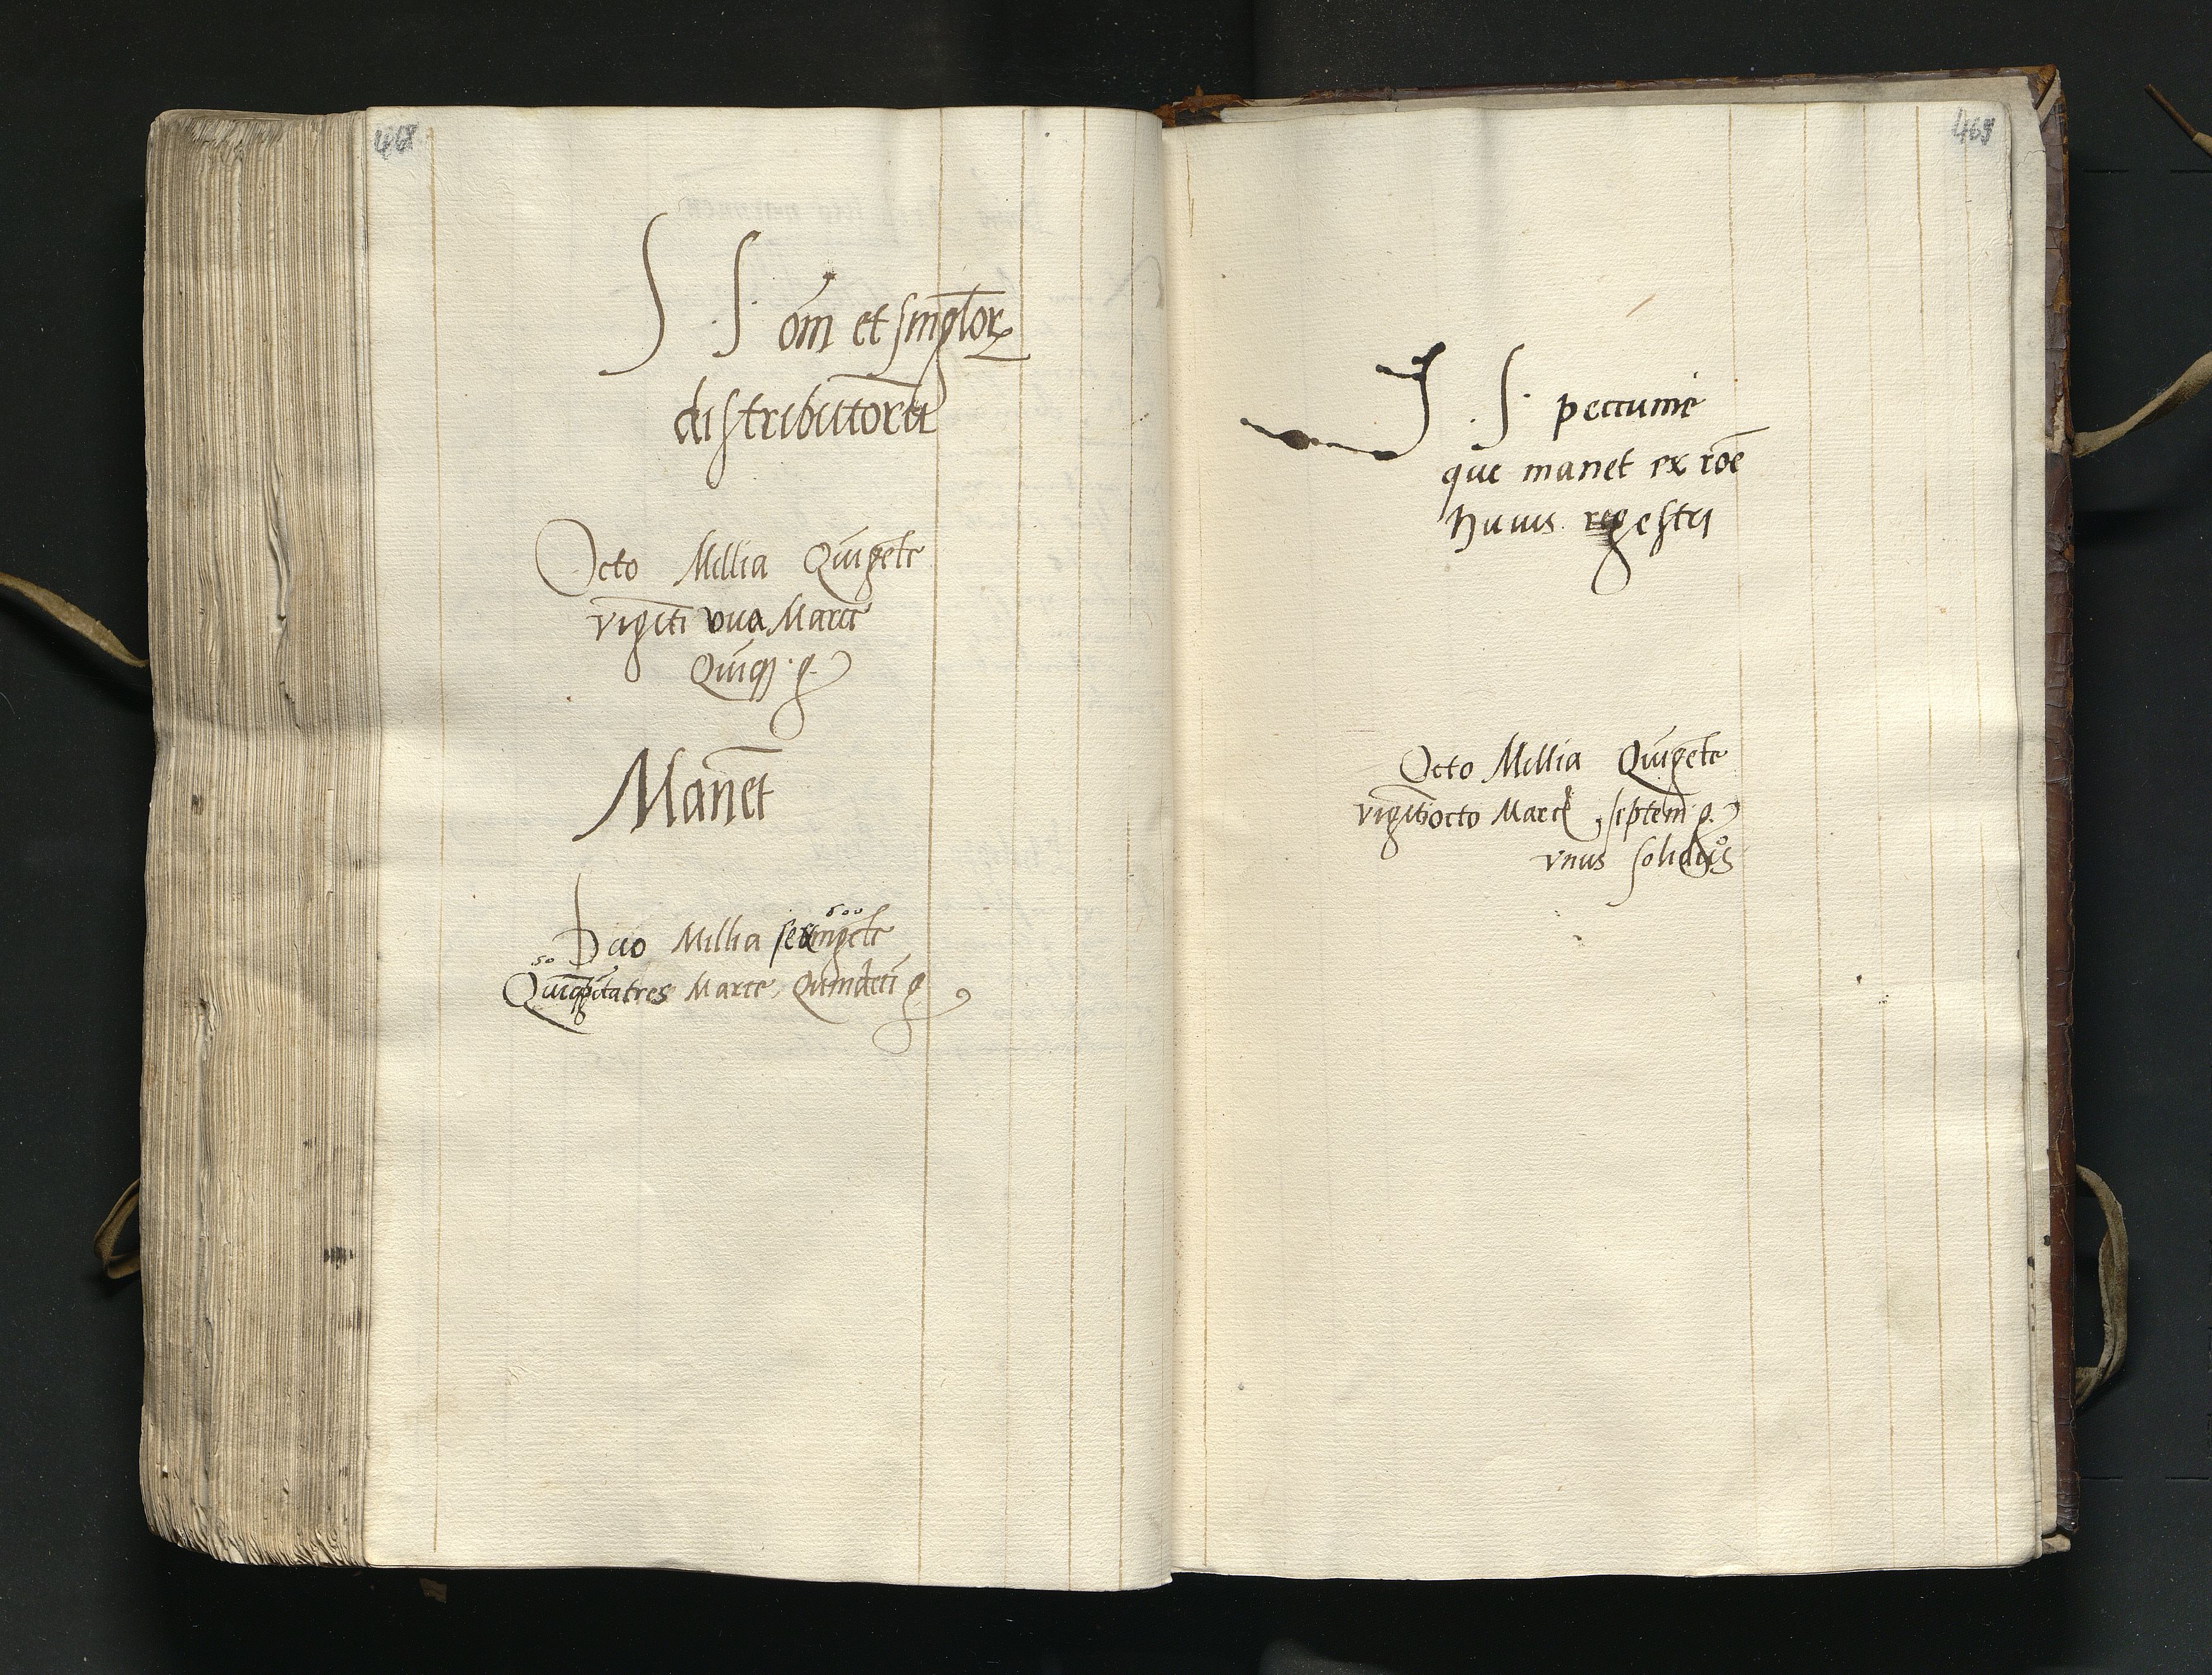 468
S S om̄ et singlor̄ꝝ
distributorū
Octo Millia Quīgēte
vigīti vna Marce
Quīqꝫ · g.
Manēt
600
Duo Millia sexingēte
50
Quīqꝫgītatres Marce, Quindeci g
S . S · peccunie
que manet ex rōe
Huius regestri
Octo Millia Quīgēte
vigītiocto Marce, septem g.
vnus solidus